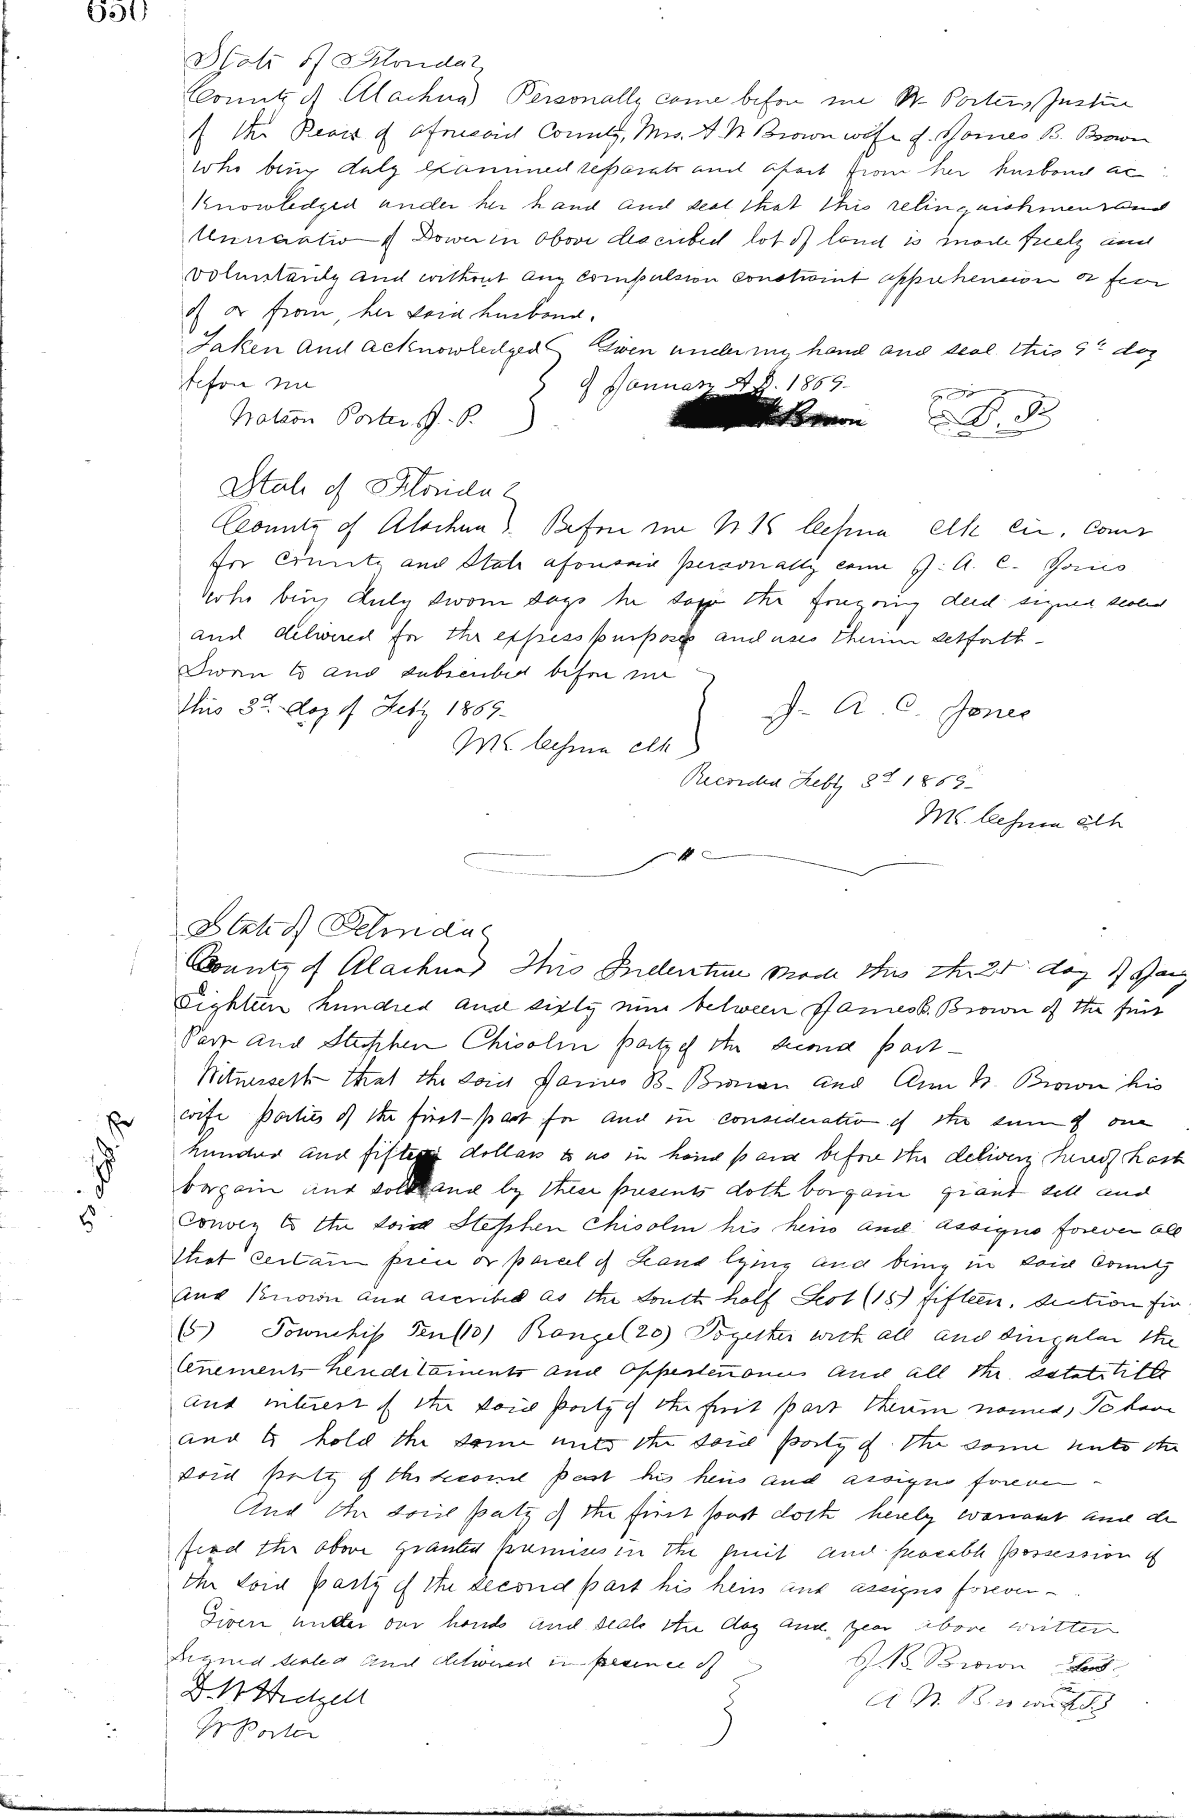 650
State of Florida
County of Alachua) Personally came before me W Porter, Justice
of the Peace of aforesaid County, Mrs. A. W Brown wife of James B. Brown
who being duly examined separate and apart from her husband ac
knowledged under her hand and seal that this relinquishment and
renunciation of Dower in above described lot of land is made freely and
voluntarily and without any compulsion constraint apprehension or fear
of or from, her said husband.
Taken and acknowledged Given under my hand and seal this 9th day
before me of January A.D. 1869-
Watson Porter J. P. Brown
State of Florida
County of Alachua). Before me clk cir. Court
for County and State aforesaid personally came J. A. C. Jones
who being duly sworn says he saw the foregoing deed signed sealed
and delivered for the express purposes and uses therein setforth-
Sworn to and subscribed before me
this 3d day of Feby 1869- J- A. C. Jones
clk
Recorded Feby 3d 1869-
clk
State of Florida
County of Alachua) This Indenture made this the 21 day of Jany
Eighteen hundred and sixty nine between James B. Brown of the first
Part and Stephen Chisolm party of the second part-
Witnesseth that the said James B- Brown and Ann W. Brown his
wife parties of the first part for and in consideration of the sum of one
hundred and fifteen dollars to us in hand paid before the delivery hereof hath
bargain and sold and by these presents doth bargain grant sell and
Convey to the said Stephen Chisolm his heirs and assigns forever all
that certain piece or parcel of Land lying and being in said County
and Known and ascribed as the South half Lot (15) fifteen, Section five
(5) Township Ten (10) Range (20) Together with all and singular the
tenements hereditaments and appertenances and all the estate title
and interest of the said party of the first part therein named, To have
and to hold the same unto the said party of the same unto the
said party of the second part his heirs and assigns forever-
And the said party of the first part doth hereby warrant and de
fend the above granted premises in the quiet and peacable possession of
the said party of the second part his heirs and assigns forever-
Given under our hands and seals the day and year above written
Signed sealed and delivered in presence of J. B. Brown
A W. Brown
W Porter